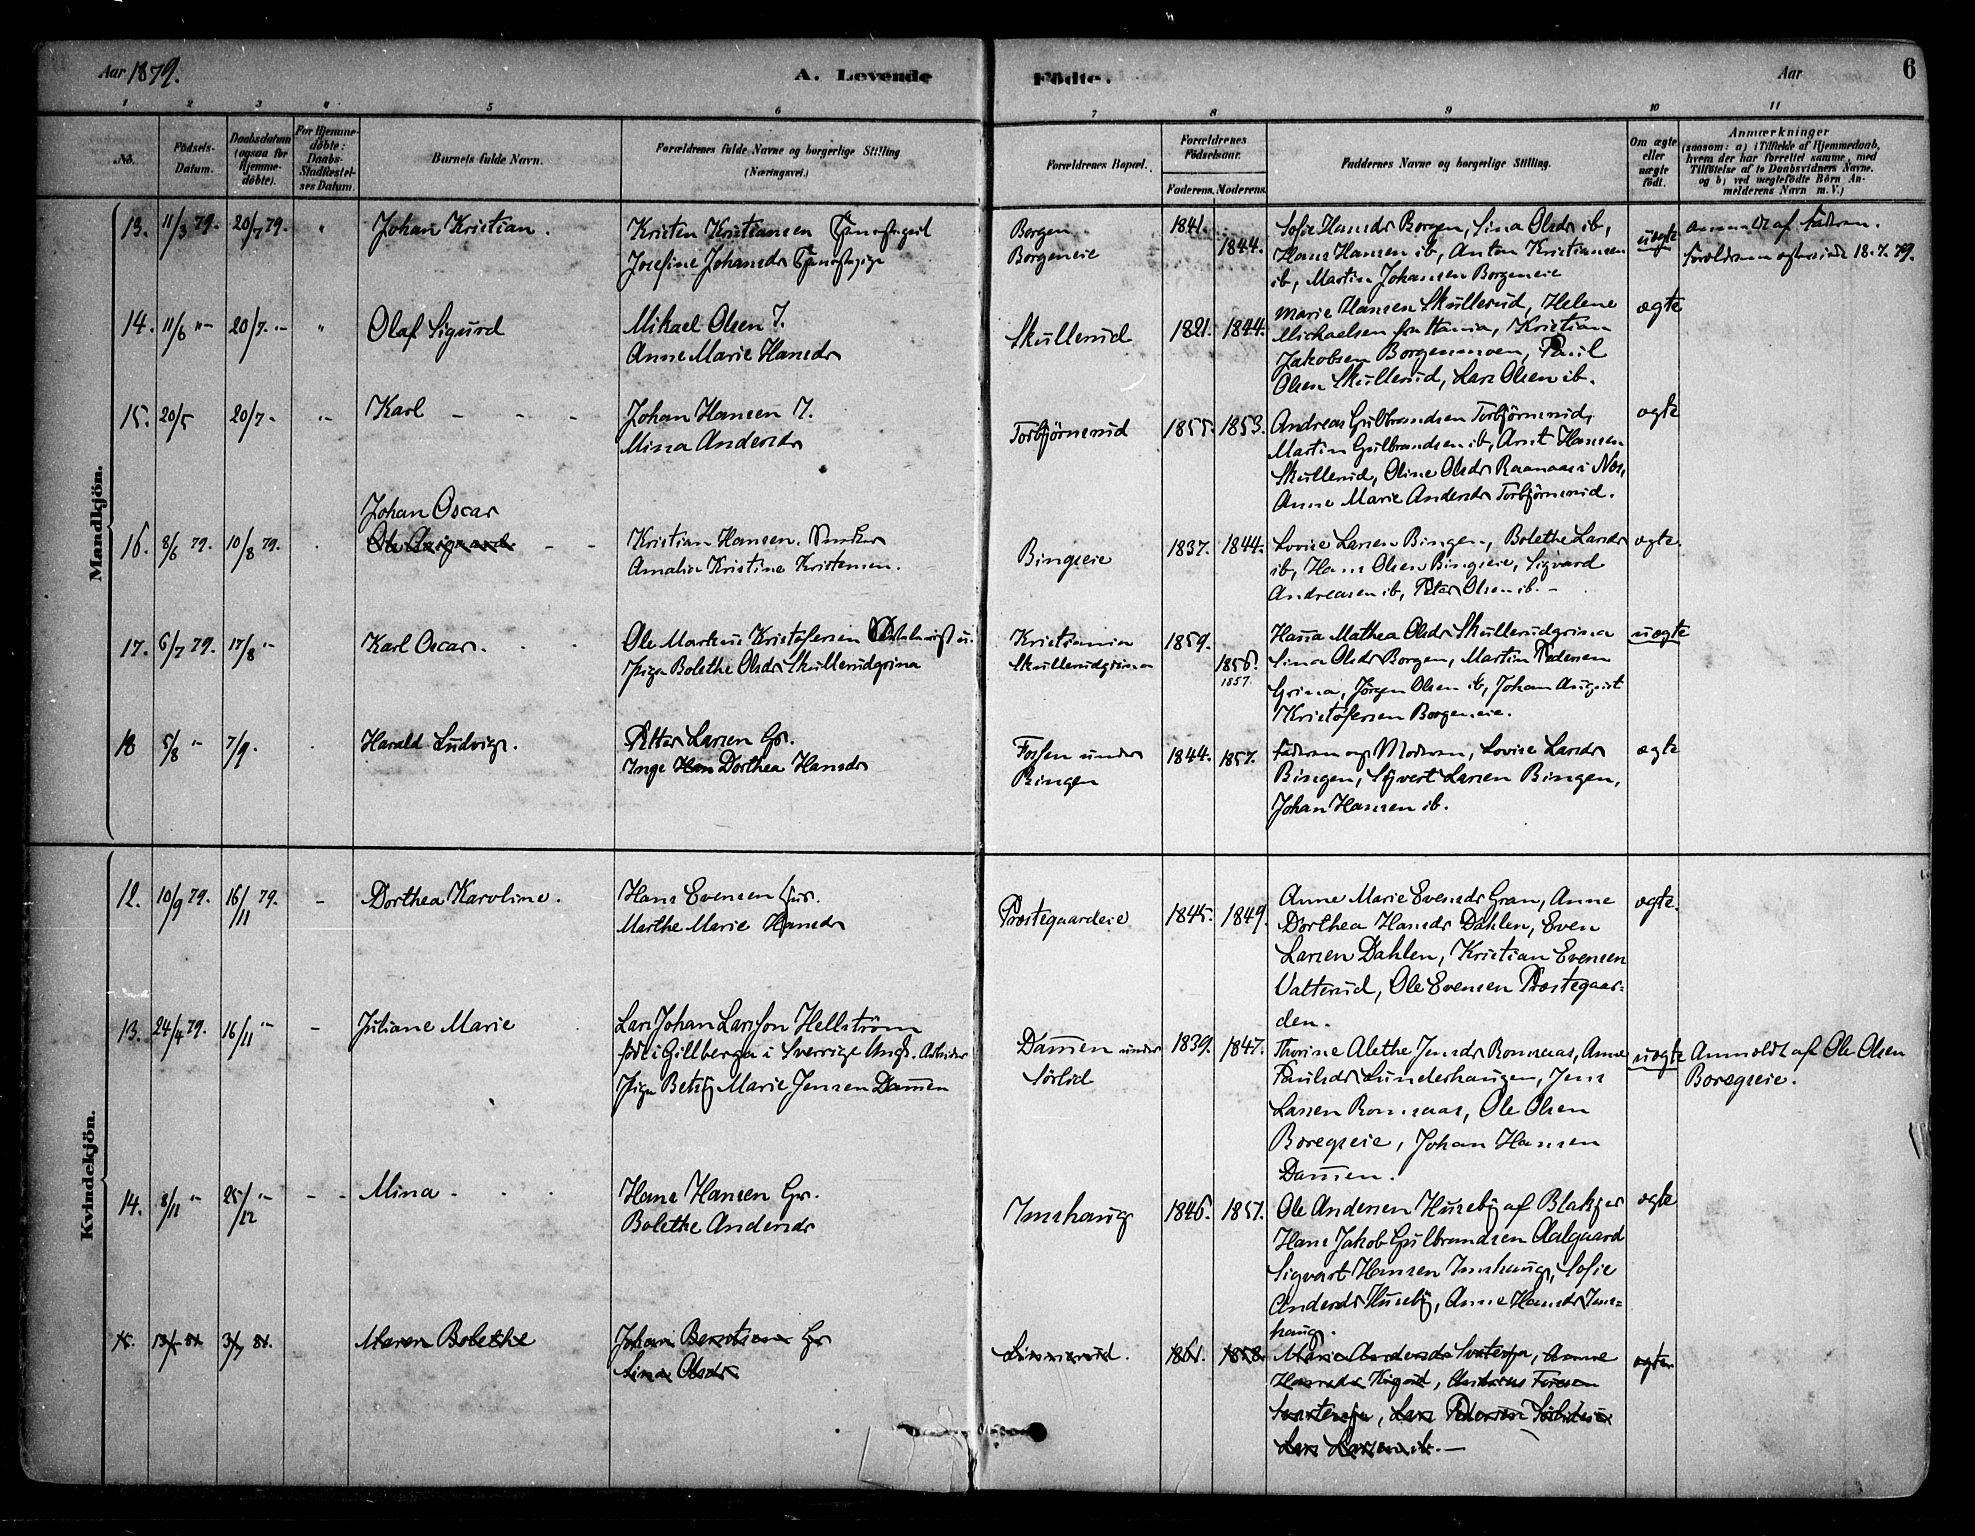 Aar 1879.
A. Levende
Födte.
Aar
6
1 2 3 4 5 6 7 8 9 10 11
No.
Födsels-Datum.
Daabsdatum (ogsaa for Hjemme-döbte).
For Hjemme-döbte: Daabs-Stadfæstelses Datum.
Barnets fulde Navn.
Forældrenes fulde Navne og borgerlige Stilling (Næringsvei.)
Forældrenes Bopæl.
Forældrenes Födselsaar.
Faderens. Moderens.
Faddernes Navne og borgerlige Stilling.
Om ægte eller uægte födt.
Anmærkninger
(saasom: a) i Tilfælde af Hjemmedaab, hvem der har forrettet samme, med Tilföielse af to Daabsvidners Navne. og b) ved uægtefödte Börn Anmelderens Navn m. V.)
Mandkjön.
13. 11/3 79. 20/7 79. " Johan Kristian.
Kristen Kristiansen
Josefine Johansdr
Borgen
Borgereie
1841. 1844.
Sofie Hansdr Borgen, Lina Olsdr ib,
Hans Hansen ib, Anton Kristiansen
ib, Martin Johansen Borgereie
uægte
Anmeldt af Faderen.
Forældrene 18.7.79.
14. 11/6 "- 20/7 "- " Olaf Sigurd
Mikael Olsen I.
Anne Marie Hansdr
Skullerud
1821. 1844.
Marie Hansen Skullerud, Helene
Michaelsen fra Kania, Kristian
Jakobsen Borgenmoen, Paul
Olsen Skullerud, Lars Olsen ib.
ægte
15. 20/5 20/7 - " Karl - - -
Johan Hansen I.
Mina Andersdr
Torbjörnerud
1855. 1853.
Andreas Gulbrandsen Torbjörnerud,
Martin Gulbrandsen ib, Arnt Hansen
Skullerud, Oline Olsdr Raanaas i Næs,
Anne Marie Andersdr Torbjörnerud.
ægte
Johan Oscar
16. 8/6 79. 10/8 79.
Kristian Hansen.
Amalie Kristine Kristensen.
Bingseie
1837. 1844.
Lovise Larsen Bingen, Bolethe Larsdr
ib, Hans Olsen Bingseie, Sigvard
Andreasen ib, Peter Olsen ib. -
ægte.
17. 6/7 79. 17/8 "- Karl Oscar.
Ole Markus Kristofersen
Pige Bolethe Olsdr Skullerudgrina
Kristiania
Skullerudgrina
1859. 1856.
1857.
Hanna Mathea Olsdr Skullerudgrina
Lina Olsdr Borgen, Martin Pedersen
Grina, Jörgen Olsen ib, Johan August
Kristofersen Borgereie.
uægte
18 5/8 " 7/9. Harald Ludvig.
Petter Larsen Gr.
Inge Dorthea Hansdr
Fossen under
Bingen
1844. 1857.
Faderen og Moderen, Lovise Larsdr
Bingen, Sÿvert Larsen Bingen,
Johan Hansen ib.
ægte
Kvindekjön.
12. 10/9 79. 16/11 79. - Dorthea Karoline.
Hans Evensen
Marthe Marie Hansdr
Præstegaardeie
1845. 1849.
Anne Marie Evensdr Gran, Anne
Dorthea Hansdr Dahlen, Even
Larsen Dahlen, Kristian Evensen
Valterud, Ole Evensen Præstegaar-
den.
ægte.
13. 24/4 79. 16/11 "- - Juliane Marie
Lars Johan Larsson Hellström
född i Gillberga i Sverrige Ungk. Arbeider
Pige Betsÿ Marie Jensen Damen
Damen under
Sörlid
1839. 1847.
Thorine Alethe Jensdr Romsaas, Anne
Paulsdr Lunderhaugen, Jens
Larsen Romsaas, Ole Olsen
Boregseie, Johan Hansen
Damen.
uægte
Anmeldt af Ole Olsen
Boregseie.
14. 8/11 " 25/12 "- - - Mina -
Hans Hansen Gr.
Bolethe Andersdr
Imshaug
1846. 1857.
Ole Andersen Husebÿ af Blakjer
Hans Jakob Gulbrandsen Aalgaard
Sigvart Hansen Imshaug, Sofie
Andersdr Husebÿ, Anne Hansdr Ims-
haug.
ægte
15. Maren Bolethe
Johan Berntsen Gr
Lina Olsdr
1861. 1858.
Marie Andersdr Svartersja, Anne
Lars Pedersen
Lars Larsen ib. -
ægte